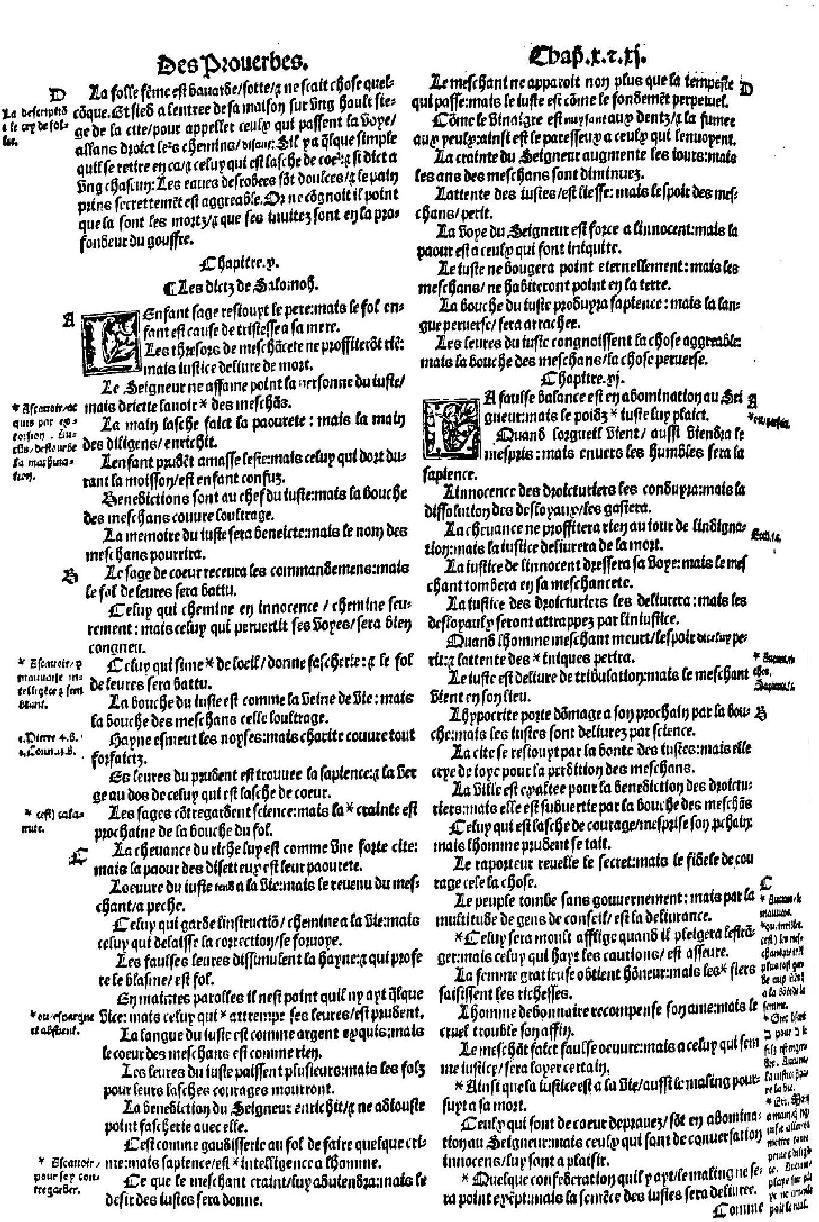 Des Prouerbes.
D
La folle fẽme est bauarde/sotte/ꝛ ne scait chose quel-
cõque. Et sied a lentree de sa maison sur vng hault sie-
ge de la cite/pour appeller ceulx qui passent la voye/
allans droict leᵗs chemins/disant: Sil y a q̃lque simple
quil se retire en ca/ꝛ celuy qui est lasche de coeᵗ: ꝛ si dict a
vng chascun: Les eaues desrobees sõt doulces/ꝛ le pain
prins secrettemẽt est aggreable. Or ne cõgnoit il point
que la sont les mortz/ꝛ que ses inuitez sont en la pro-
fondeur du gouffre.
Chapitre.x.
¶Les dictz de Salomoh.
A
LEnfant sage resiouyt le pere: mais le fol en-
fant est cause de tristesse a sa mere.
Les thresors de meschãcete ne proffiterõt riẽ:
mais iustice deliure de mort.
Le Seigneur ne affame point la personne du iuste/
mais deiette lauoir* des meschãs.
La main lasche faict la paourete: mais la main
des diligens/enrichit.
Lenfant prudẽt amasse leste: mais celuy qui dort du-
rant la moisson/est enfant confuz.
Benedictions sont au chef du iuste: mais la bouche
des meschans couure loultrage.
La memoire du iuste sera beneicte: mais le nom des
meschans pourrira.
B
Le sage de coeur receura les commandemens: mais
le fol de leures sera battu.
Celuy qui chemine en innocence / chemine seu-
rement: mais celuy qui peruertit ses voyes/sera bien
congneu.
Celuy qui signe* de loeil/donne fascherie: ꝛ le fol
de leures sera battu.
La bouche du iuste est comme la veine de vie: mais
la bouche des meschans celle loultrage.
Hayne esmeut les noyses: mais charite couure tout
forfaictz.
Es leures du prudent est trouuee la sapience: ꝛ la ver
ge au dos de celuy qui est lasche de coeur.
Les sages cõtregardent science: mais la* crainte est
prochaine de la bouche du fol.
C
La cheuance du riche luy est comme vne forte cite:
mais la paour des disetteux est leur paourete.
Loeuure du iuste tend a la vie: mais le reuenu du mes-
chant/a peche.
Celuy qui garde linstructiõ/chemine a la vie: mais
celuy qui delaisse la correction/se foruoye.
Les faulses leures dissimulent la hayne: ꝛ qui profe
re le blasme/est fol.
En maintes parolles il nest point quil ny ayt q̃lque
vice: mais celuy qui* attrempe ses leures/est prudent.
La langue du iuste est comme argent exquis: mais
le coeur des meschans est comme rien.
Les leures du iuste paissent plusieurs: mais les folz
pour leurs lasches courages mourront.
La benediction du Seigneur enrichit/ꝛ ne adiouste
point fascherie auec elle.
Cest comme gaudisserie au fol de faire quelque cri-
me: mais sapience/est *intelligence a lhomme.
Ce que le meschant craint/luy aduiendra: mais le
desir des iustes sera donne.
La descriptiõ
1.Pierre 4.b.
* cest) cala-
mite.
* ou espargne
et abstient.
Chap.x.ꝛ.xj.
Le meschant ne apparoit non plus que la tempeste
D
qui passe: mais le iuste est cõme le fondemẽt perpetuel.
Cõme le vinaigre est nuysant aux dentz/ꝛ la fumee
aux yeulx: ainsi est le paresseux a ceulx qui lenuoyent.
La crainte du Seigneur augmente les iours: mais
les ans des meschans sont diminuez.
Lattente des iustes/est liesse: mais lespoir des mes-
chans/perit.
La voye du Seigneur est force a linnocent: mais la
paour est a ceulx qui font iniquite.
Le iuste ne bougera point eternellement: mais les
meschans/ne habiteront point en la terre.
La bouche du iuste produyra sapience: mais la lan-
gue peruerse/sera arrachee.
Les leures du iuste congnoissent la chose aggreable:
mais la bouche des meschans/la chose peruerse.
Chapitre.xj.
LA faulse balance est en abomination au Sei
A
gneur: mais le poidz* iuste luy plaict.
Quand lorgueil vient/ aussi viendra le
mespris: mais enuers les humbles sera la
sapience.
Linnocence des droicturiers les conduyra: mais la
dissolution des desloyaux/les gastera.
La cheuance ne proffitera rien au iour de lindigna-
tion: mais la iustice deliurera de la mort.
La iustice de linnocent dressera sa voye: mais le mes
chant tombera en sa meschancete.
La iustice des droicturiers les deliurera: mais les
desloyaulx seront attrappez par liniustice.
Quand lhomme meschant meurt/lespoir diceluy pe-
rit: ꝛ lattente des *iniques perira.
Le iuste est deliure de tribulation: mais le meschant
vient en son lieu.
Lhypocrite porte dõmage a son prochain par la bou-
B
che: mais les iustes sont deliurez par science.
La cite se resiouyt par la bonte des iustes: mais elle
crye de ioye pour la perdition des meschans.
La ville est exaltee pour la benediction des droictu-
riers: mais elle est subuertie par la bouche des meschãs
Celuy qui est lasche de courage/mesprise son pchain
mais lhomme prudent se tait.
Le raporteur reuelle le secret: mais le fidele de cou
rage cele la chose.
C
Le peuple tombe sans gouuernement: mais par la
multitude de gens de conseil/est la deliurance.
*Celuy sera moult afflige quand il pleigera lestrã-
ger: mais celuy qui hayt les cautions/ est asseure.
La femme gratieuse obtient hõneur: mais les* fiers
saisissent les richesses.
Lhomme debonnaire recompense son ame: mais le
cruel trouble son affin.
Le meschãt faict faulse oeuure: mais a celuy qui sem
me iustice/sera loyer certain.
*Ainsi que la iustice est a la vie/aussi le maling pour-
suyt a sa mort.
Ceulx qui sont de coeur deprauez/sõt en abomina-
tion au Seigneur: mais ceulx qui sont de conuersation
innocens/luy sont a plaisir.
*Quelque confederation quil y ayt/le maling ne se-
ra point exẽpt: mais la semẽce des iustes sera deliuree.
Comme